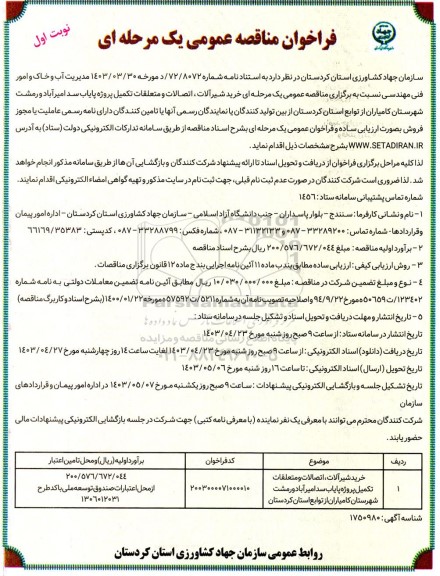 نوبت اول
فراخوان مناقصه عمومی یک مرحله ای
سازمان جهاد کشاورزی استان کردستان در نظر دارد به استناد نامه شماره ۷۲/۸۰۷۲/د مورخه ۱۴۰۳/۰۳/۳۰ مدیریت آب و خاک و امور
فنی مهندسی نسبت به برگزاری مناقصه عمومی یک مرحله ای خرید شیرآلات ، اتصالات و متعلقات تکمیل پروژه پایاب سد امیرآباد و رمشت
شهرستان کامیاران از توابع استان کردستان از بین تولید کنندگان یا نمایندگان رسمی آنها یا تامین کنندگان دارای نامه رسمی عاملیت یا مجوز
فروش بصورت ارزیابی ساده و فراخوان عمومی یک مرحله ای بشرح اسناد مناقصه از طریق سامانه تدارکات الکترونیکی دولت (ستاد) به آدرس
WWW.SETADIRAN.IR بشرح مشخصات ذیل اقدام نماید.
لذا کلیه مراحل برگزاری فراخوان از دریافت و تحویل اسناد تا ارائه پیشنهاد شرکت کنندگان و بازگشایی آن ها از طریق سامانه مذکور انجام خواهد
شد . لذا ضروری است شرکت کنندگان در صورت عدم ثبت نام قبلی ، جهت ثبت نام در سایت مذکور و تهیه گواهی امضاء الکترونیکی اقدام نمایند.
شماره تماس پشتیبانی سامانه ستاد: ۱۴۵۶
۱ – نام و نشانی کارفرما : سنندج - بلوار پاسداران - جنب دانشگاه آزاد اسلامی - سازمان جهاد کشاورزی استان کردستان - اداره امور پیمان
و قراردادها - شماره تماس : ۳۳۲۸۹۲۰۰ - ۰۸۷ و ۳۱۱۳۲۱۳۳ - ۰۸۷ ، شماره فکس : ۳۳۲۸۸۷۹۹ - ۰۸۷ ، کدپستی : ۶۶۱۶۹/۳۵۳۸۳
۲ – برآورد اولیه مناقصه : مبلغ ۲۰۰/۵۷۶/۶۷۲/۰۴۴ ریال بشرح اسناد مناقصه
۳ – روش ارزیابی کیفی : ارزیابی ساده مطابق بند ب ماده ۱۱ آئین نامه اجرایی بند ج ماده ۱۲ قانون برگزاری مناقصات .
۴ – نوع و مبلغ تضمین شرکت در مناقصه : مبلغ ۱۰/۰۳۰/۰۰۰/۰۰۰ ریال مطابق آئین نامه تضمین معاملات دولتی به نامه شماره
۱۲۳۴۰۲/ت۵۰۶۵۹ه مورخ ۹۴/۹/۲۲ و اصلاحیه تصویب نامه آن به شماره ۵۲۱۱/ت۵۷۵۹۲ه مورخه ۱۴۰۰/۰۱/۲۲ (بشرح اسناد و کاربرگ مناقصه)
۵ – تاریخ انتشار و مهلت دریافت و تحویل اسناد و تشکیل جلسه در سامانه ستاد :
تاریخ انتشار در سامانه ستاد : از ساعت ۹ صبح روز شنبه مورخ ۱۴۰۳/۰۴/۲۳
تاریخ دریافت (دانلود) اسناد الکترونیکی : از ساعت ۹ صبح روز شنبه مورخ ۱۴۰۳/۰۴/۲۳ لغایت ساعت ۱۴ روز چهارشنبه مورخ ۱۴۰۳/۰۴/۲۷
تاریخ تحویل (ارسال) اسناد الکترونیکی : تا ساعت ۱۶ روز شنبه مورخ ۱۴۰۳/۰۵/۰۶
تاریخ تشکیل جلسه و بازگشایی الکترونیکی پیشنهادات : ساعت ۹ صبح روز یکشنبه مورخ ۱۴۰۳/۰۵/۰۷ در اداره امور پیمان و قراردادهای
سازمان
شرکت کنندگان محترم می توانند با معرفی یک نفر نماینده ( با معرفی نامه کتبی ) جهت شرکت در جلسه بازگشایی الکترونیکی پیشنهادات مالی
حضور یابند .
ردیف موضوع کد فراخوان برآورد اولیه (ریال) و محل تامین اعتبار
۱ خرید شیرآلات ، اتصالات و متعلقات تکمیل پروژه پایاب سد امیرآباد و رمشت شهرستان کامیاران از توابع استان کردستان ۲۰۰۳۰۰۰۰۷۱۰۰۰۰۱۰ ۲۰۰/۵۷۶/۶۷۲/۰۴۴ از محل اعتبارات صندوق توسعه ملی با کد طرح ۱۳۰۶۰۱۲۰۳۱
شناسه آگهی : ۱۷۵۰۹۸۰
روابط عمومی سازمان جهاد کشاورزی استان کردستان